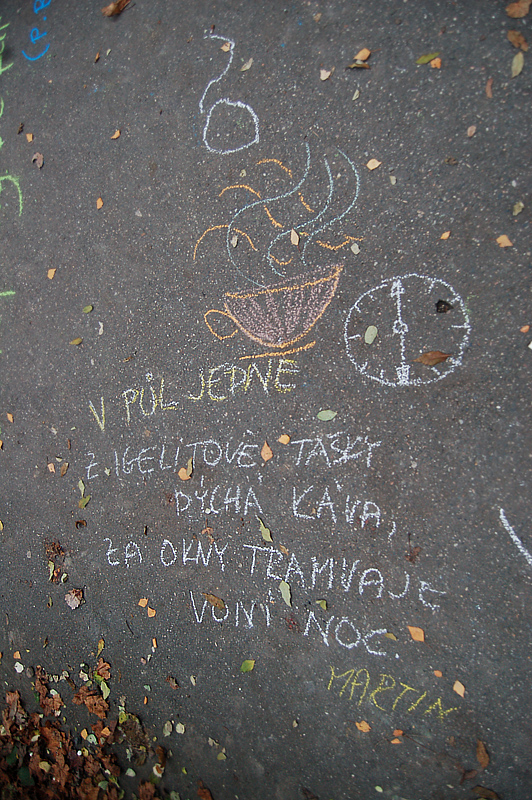 V PŮL JEDNÉ
Z IGELITOVÉ TAŠKY
DÝCHÁ KÁVA,
ZA OKNY TRAMVAJE
VONÍ NOC.
MARTIN